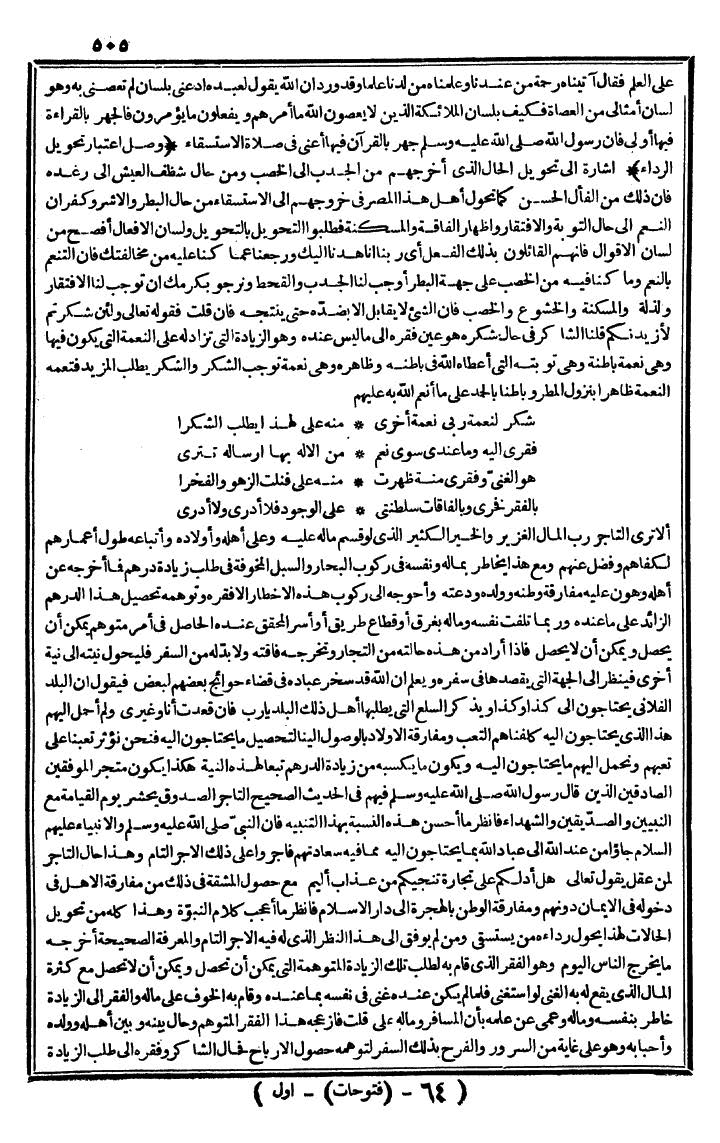 ٥٠٥
على العلم فقال آتيناه رحمة من عندنا وعلمناه من لدنا علما وقد ورد ان الله يقول لعبده ادعنى بلسان لم تعصنى به وهو
لسان أمثالى من العصاة فكيف بلسان الملائكة الذين لا يعصون الله ما أمرهم و يفعلون ما يؤمرون فالجهر بالقراءة
فيها أولى فان رسول الله صلى الله عليه وسلم جهر بالقرآن فيها أعنى فى صلاة الاستسقاء ﴿وصل اعتبار تحويل
الرداء﴾ اشارة الى تحويل الحال الذى أخرجهم من الجدب الى الخصب ومن حال شظف العيش الى رغده
فان ذلك من الفأل الحسن كما تحول أهل هذا المصر فى خروجهم الى الاستسقاء من حال البطر والاشر وكفران
النعم الى حال التوبة والافتقار واظهار الفاقة والمسكنة فطلبوا التحويل بالتحويل ولسان الافعال أفصح من
لسان الاقوال فانهم القائلون بذلك الفعل أى ربنا انا هدنا اليك ورجعنا عما كنا عليه من مخالفتك فان التنعم
بالنعم وما كنا فيه من الخصب على جهة البطر أوجب لنا الجدب والقحط ونرجو بكرمك ان توجب لنا الافتقار
ولذلة والمسكنة والخشوع والخصب فان الشئ لا يقابل الا بضده حتى ينتجه فان قلت فقوله تعالى ولئن شكرتم
لأزيدنكم قلنا الشاكر فى حال شكره هو عين فقره الى ما ليس عنده وهو الزيادة التى تزاد له على النعمة التى يكون فيها
وهى نعمة باطنة وهى توبته التى أعطاه الله فى باطنه وظاهره وهى نعمة توجب الشكر والشكر يطلب المزيد فتعمه
النعمة ظاهرا بنزول المطر وباطنا بالحمد على ما أنعم الله به عليهم
شكر لنعمة ربى نعمة أخرى * منه على لهذا يطلب الشكرا
فقرى اليه وما عندى سوى نعم * من الاله بها ارساله تترى
هو الغنىّ وفقرى منة ظهرت * منه على فنلت الزهو والفخرا
بالفقر فخرى وبالفاقات سلطنتى * على الوجود فلا أدرى ولا أدرى
ألا ترى التاجر رب المال الغزير والخير الكثير الذى لو قسم ماله عليه وعلى أهله وأولاده وأتباعه طول أعمارهم
لكفاهم وفضل عنهم ومع هذا يخاطر بماله ونفسه فى ركوب البحار والسبل المخوفة فى طلب زيادة درهم فما أخرجه عن
أهله وهون عليه مفارقة وطنه وولده ودعته وأحوجه الى ركوب هذه الاخطار الا فقره وتوهمه تحصيل هذا الدرهم
الزائد على ما عنده وربما تلفت نفسه وماله بغرق أو قطاع طريق أو أسر المحقق عنده الحاصل فى أمر متوهم يمكن أن
يحصل ويمكن أن لا يحصل فاذا أراد من هذه حالته من التجار وتخرجه فاقته ولا بدّ له من السفر فليحول نيته الى نية
أخرى فينظر الى الجهة التى يقصدها فى سفره ويعلم ان الله قد سخر عباده فى قضاء حوائج بعضهم لبعض فيقول ان البلد
الفلانى يحتاجون الى كذا وكذا ويذكر السلع التى يطلبها أهل ذلك البلد يارب فان قعدت أنا وغيرى ولم أحمل اليهم
هذا الذى يحتاجون اليه كلفناهم التعب ومفارقة الاولاد بالوصول الينا لتحصيل ما يحتاجون اليه فنحن نؤثر تعبنا على
تعبهم ونحمل اليهم ما يحتاجون اليه ويكون ما يكسبه من زيادة الدرهم تبعا لهذه النية هكذا يكون متجر الموفقين
الصادقين الذين قال رسول الله صلى الله عليه وسلم فيهم فى الحديث الصحيح التاجر الصدوق يحشر يوم القيامة مع
النبيين والصدّيقين والشهداء فانظر ما أحسن هذه النسبة بهذا التنبيه فان النبىّ صلى الله عليه وسلم والانبياء عليهم
السلام جاؤا من عند الله الى عباد الله بما يحتاجون اليه مما فيه سعادتهم فاجروا على ذلك الاجر التام وهذا حال التاجر
لمن عقل يقول تعالى هل أدلكم على تجارة تنجيكم من عذاب أليم مع حصول المشقة فى ذلك من مفارقة الاهل فى
دخوله فى الايمان دونهم ومفارقة الوطن بالهجرة الى دار الاسلام فانظر ما أعجب كلام النبوّة وهذا كله من تحويل
الحالات لهذا يحول رداءه من يستسقى ومن لم يوفق الى هذا النظر الذى له فيه الاجر التام والمعرفة الصحيحة أخرجه
ما يخرج الناس اليوم وهو الفقر الذى قام به لطلب تلك الزيادة المتوهمة التى يمكن أن تحصل ويمكن أن لا تحصل مع كثرة
المال الذى يقع له به الغنى لو استغنى فلما لم يكن عنده غنى فى نفسه بما عنده وقام به الخوف على ماله والفقر الى الزيادة
خاطر بنفسه وماله وعمى عن علمه بأن المسافر وماله على قلت فازعجه هذا الفقر المتوهم وحال بينه وبين أهله وولده
وأحبابه وهو على غاية من السرور والفرح بذلك السفر لتوهمه حصول الارباح فحال الشاكر وفقره الى طلب الزيادة
( ٦٤ - (فتوحات) - اول )